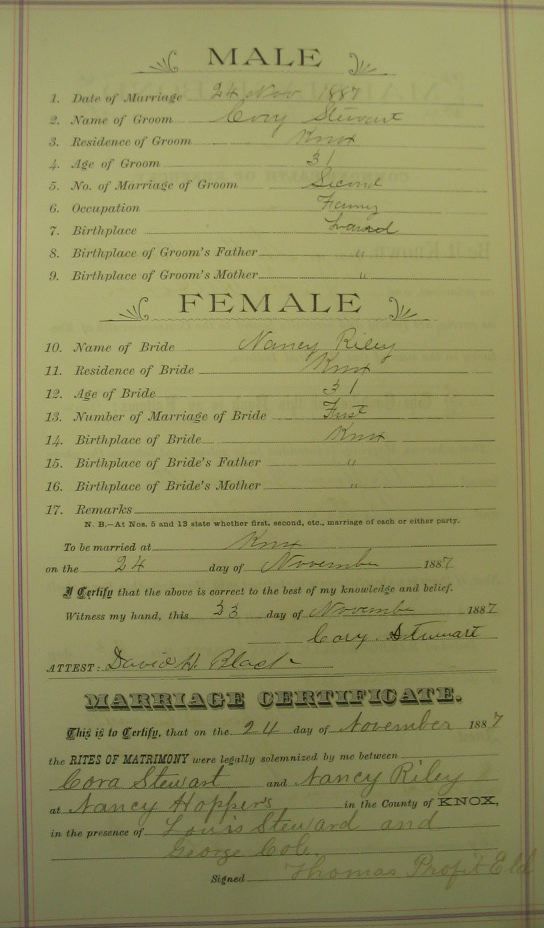 MALE
1. Date of Marriage 24 Nov 1887
2. Name of Groom Cory Stewart
3. Residence of Groom Knox
4. Age of Groom 31
5. No. of Marriage of Groom Second
6. Occupation
7. Birthplace
8. Birthplace of Groom's Father "
9. Birthplace of Groom's Mother "
FEMALE
10. Name of Bride Nancy Riley
11. Residence of Bride Knox
12. Age of Bride 31
13. Number of Marriage of Bride First
14. Birthplace of Bride Knox
15. Birthplace of Bride's Father "
16. Birthplace of Bride's Mother "
17. Remarks
N. B.—At Nos. 5 and 13 state whether first, second, etc., marriage of each or either party.
To be married at Knox
on the 24 day of November 1887
I Certify that the above is correct to the best of my knowledge and belief.
Witness my hand, this day of November 1887
Cory. Stewart
ATTEST: David W. Black
MARRIAGE CERTIFICATE.
This is to Certify, that on the 24 day of November 1887
the RITES OF MATRIMONY were legally solemnized by me between
Cora Stewart and Nancy Riley
at Nancy Hopper's in the County of KNOX,
in the presence of Louis Steward and
George Cole
Signed Thomas Profit Eld